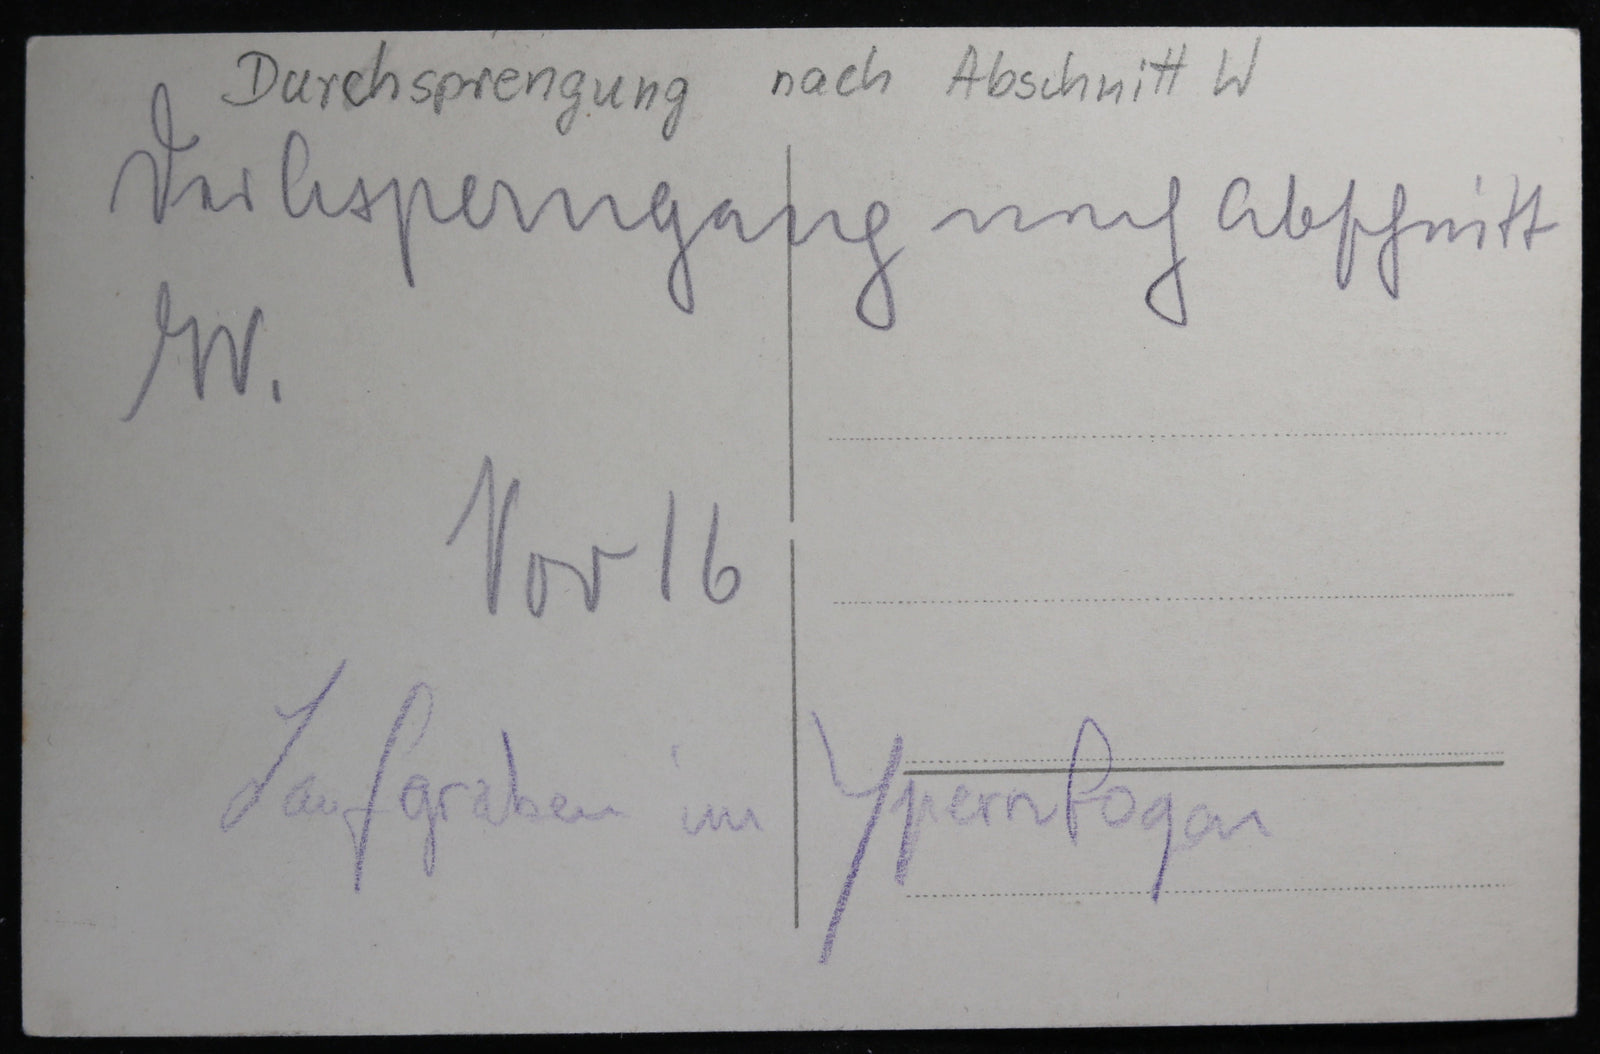 Durchsprengung nach Abschnitt W
nach Abschnitt
W.
Nov 16
Laufgraben im Ypernbogen